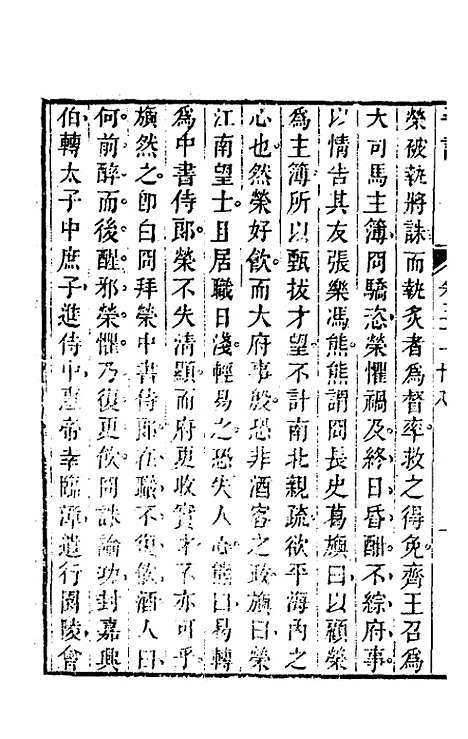 榮被執將誅而執炙者爲督率救之得免齊王召爲
大司馬主簿冏驕恣榮懼禍及終日昏酣不綜府事
以情告其友張樂馮熊熊謂冏長史葛旟曰以顧榮
爲主簿所以甄拔才望不計南北親疏欲平海內之
心也然榮好飮而大府事殷恐非酒客之政旟曰榮
江南望士且居職日淺輕易之恐失人心熊曰易轉
爲中書侍郞榮不失清顯而府更收實才不亦可乎
旟然之卽白冏拜榮中書侍郞在職不復飮酒人曰
何前醉而後醒邪榮懼乃復更飮冏誅論功封嘉興
伯轉太子中庶子進侍中惠帝幸臨漳遣行園陵會